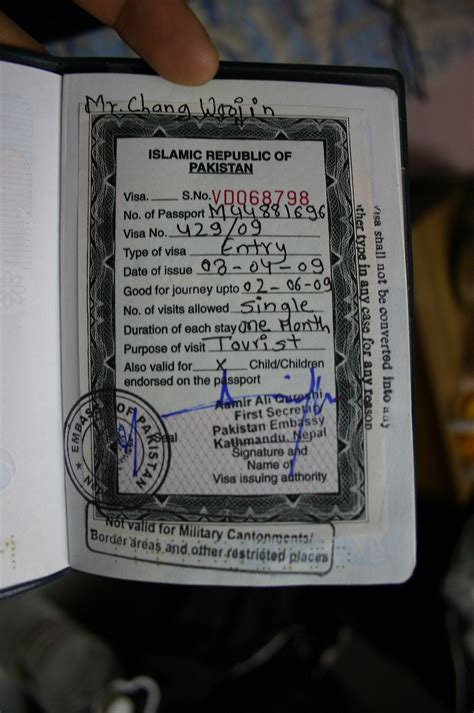 Mr. Chang Woojin
ISLAMIC REPUBLIC OF
PAKISTAN
Visa.____ S.No. VD068798
No. of Passport M94881696
Visa No. 429/09
Type of visa Entry
Date of issue 03-04-09
Good for journey upto 02-06-09
No. of visits allowed Single
Duration of each stay One Month
Purpose of visit Tourist
Also valid for x Child/Children
endorsed on the passport
Aamir Ali Qureshi
First Secretary
Pakistan Embassy
Kathmandu, Nepal
Seal
Signature and
Name of
Visa issuing authority
EMBASSY OF PAKISTAN
Not valid for Military Cantonments/
Border areas and other restricted places
Visa shall not be converted into any
other type in any case for any reason